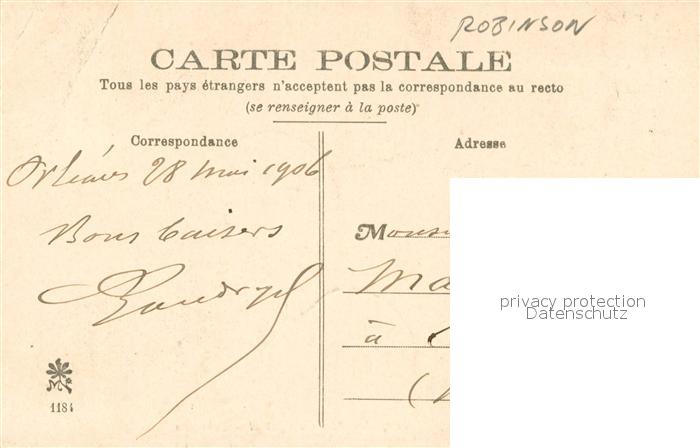 ROBINSON
CARTE POSTALE
Tous les pays étrangers n'acceptent pas la correspondance au recto
(se renseigner à la poste)
Correspondance
Adresse
Orléans 28 mai 1906
Bons baisers
M
Ma
à
privacy protection
Datenschutz
1184